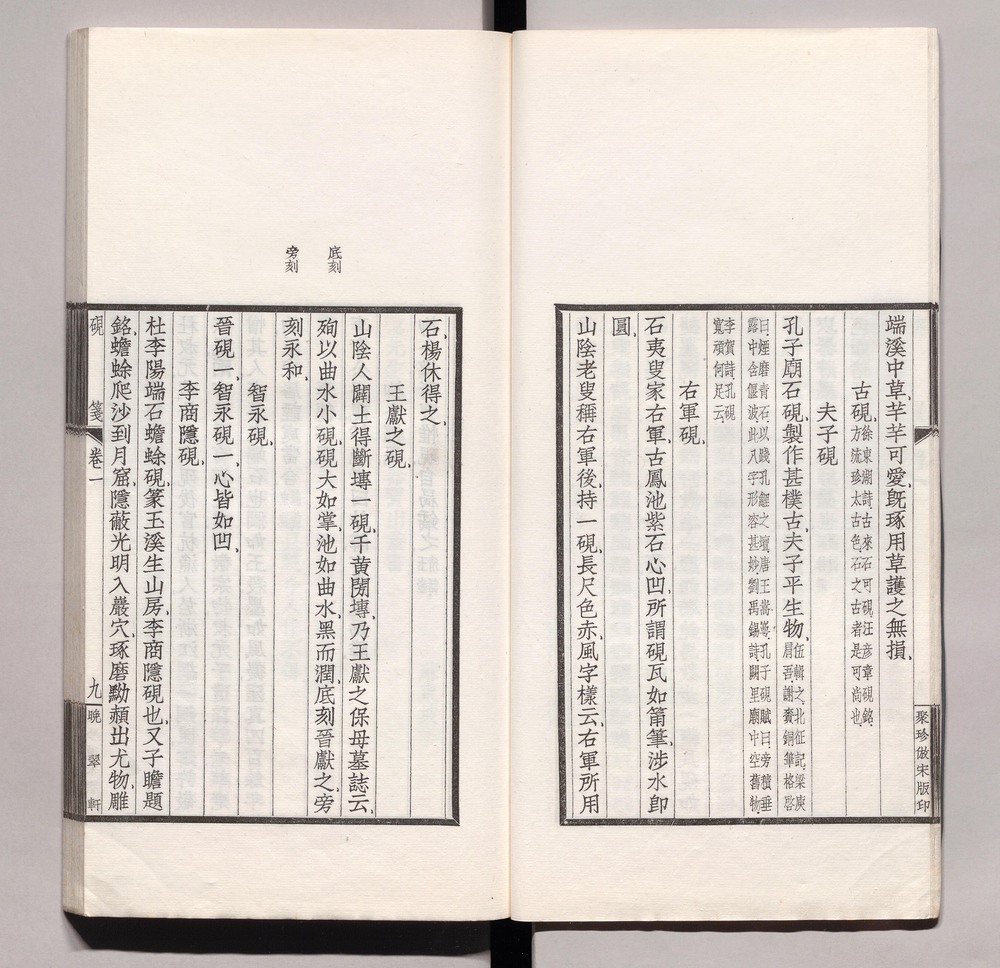 端溪中草芊芊可愛旣琢用草護之無損
古硯徐東湖詩古來石可硯汪彦章硯銘
方流珍太古色石之古者是可尚也
夫子硯
孔子廟石硯製作甚樸古夫子平生物伍輯之北征記梁庾
肩吾謝賚銅筆格啓
曰煙磨青石以踐孔氊之壇唐王嵩崿孔子硯賦曰旁積垂
露中含偃波此八字形容甚妙劉禹錫詩闕里廟中空舊物
李賀詩孔硯
寬頑何足云
右軍硯
石夷叟家右軍古鳳池紫石心凹所謂硯瓦如筩筆涉水卽
圓
山陰老叟稱右軍後持一硯長尺色赤風字樣云右軍所用
聚珍倣宋版印
石楊休得之
王獻之硯
山陰人闢土得斷塼一硯一黄閍塼乃王獻之保母墓誌云
殉以曲水小硯硯大如掌池如曲水黑而潤底刻晉獻之旁
刻永和
底刻
旁刻
智永硯
晉硯一智永硯一心皆如凹
李商隱硯
杜李陽端石蟾蜍硯篆玉溪生山房李商隱硯也又子瞻題
銘蟾蜍爬沙到月窟隱蔽光明入巖穴琢磨黝赬出尤物雕
硯箋 卷一 九 晚翠軒